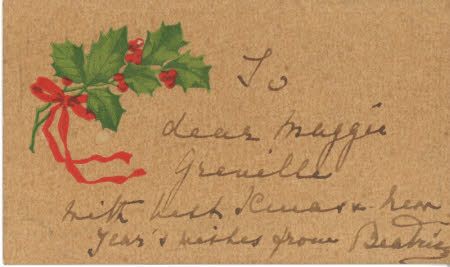 To
dear Maggie
Greville
With best Xmas & New
Year's wishes from Beatrice